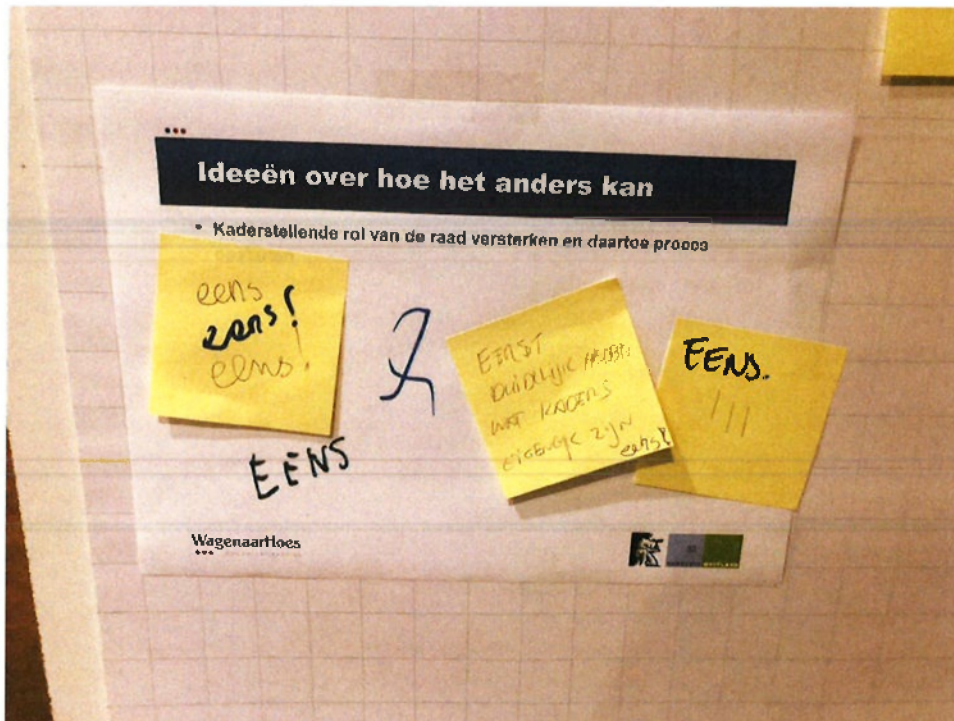 Ideeën over hoe het anders kan
• Kaderstellende rol van de raad versterken en daartoe proces
eens
eens!
eens!
EENS
EERST
DUIDELIJK
WAT KADERS
EIGENLIJK ZIJN
eens!
EENS.
WagenaarHoes